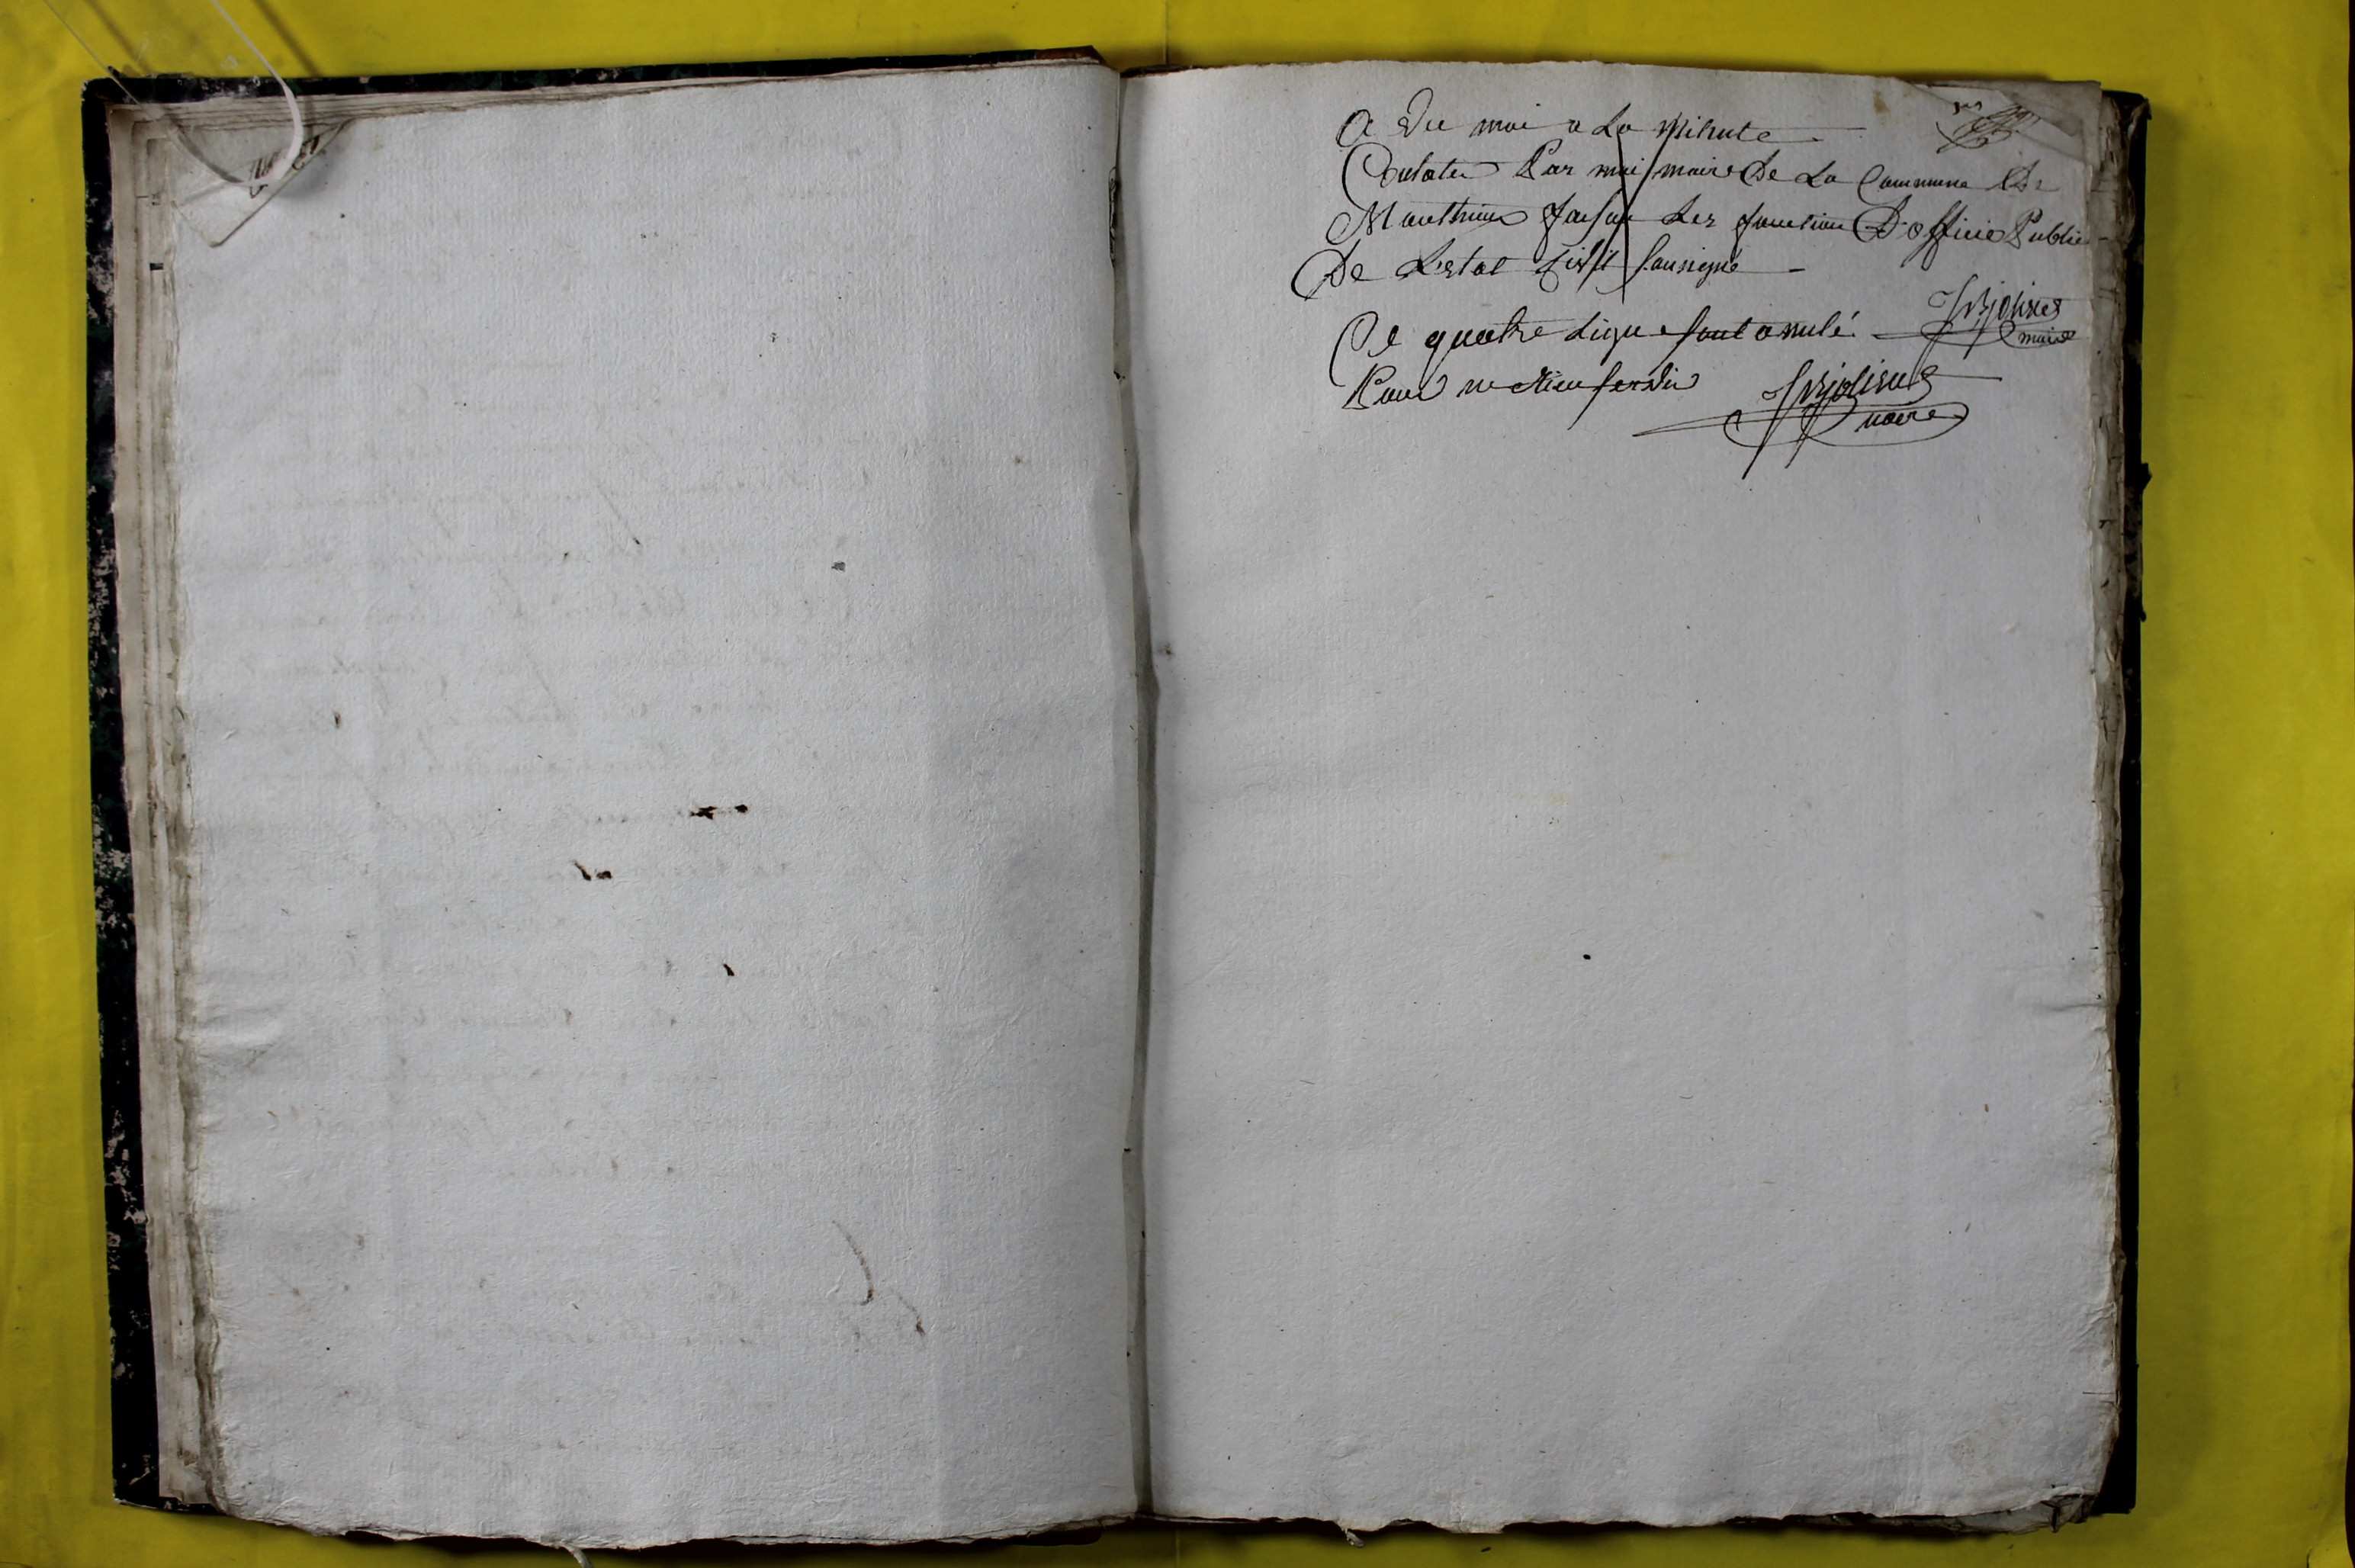 a Du moi a La Minute
Constater Par moi maire De La Commune De
Monthiers faisan Les fonction D'officie Public
De L'estat Civil sousigné
Ce quatre Ligne sont annulé
maire
Pour ne Rien servir
maire